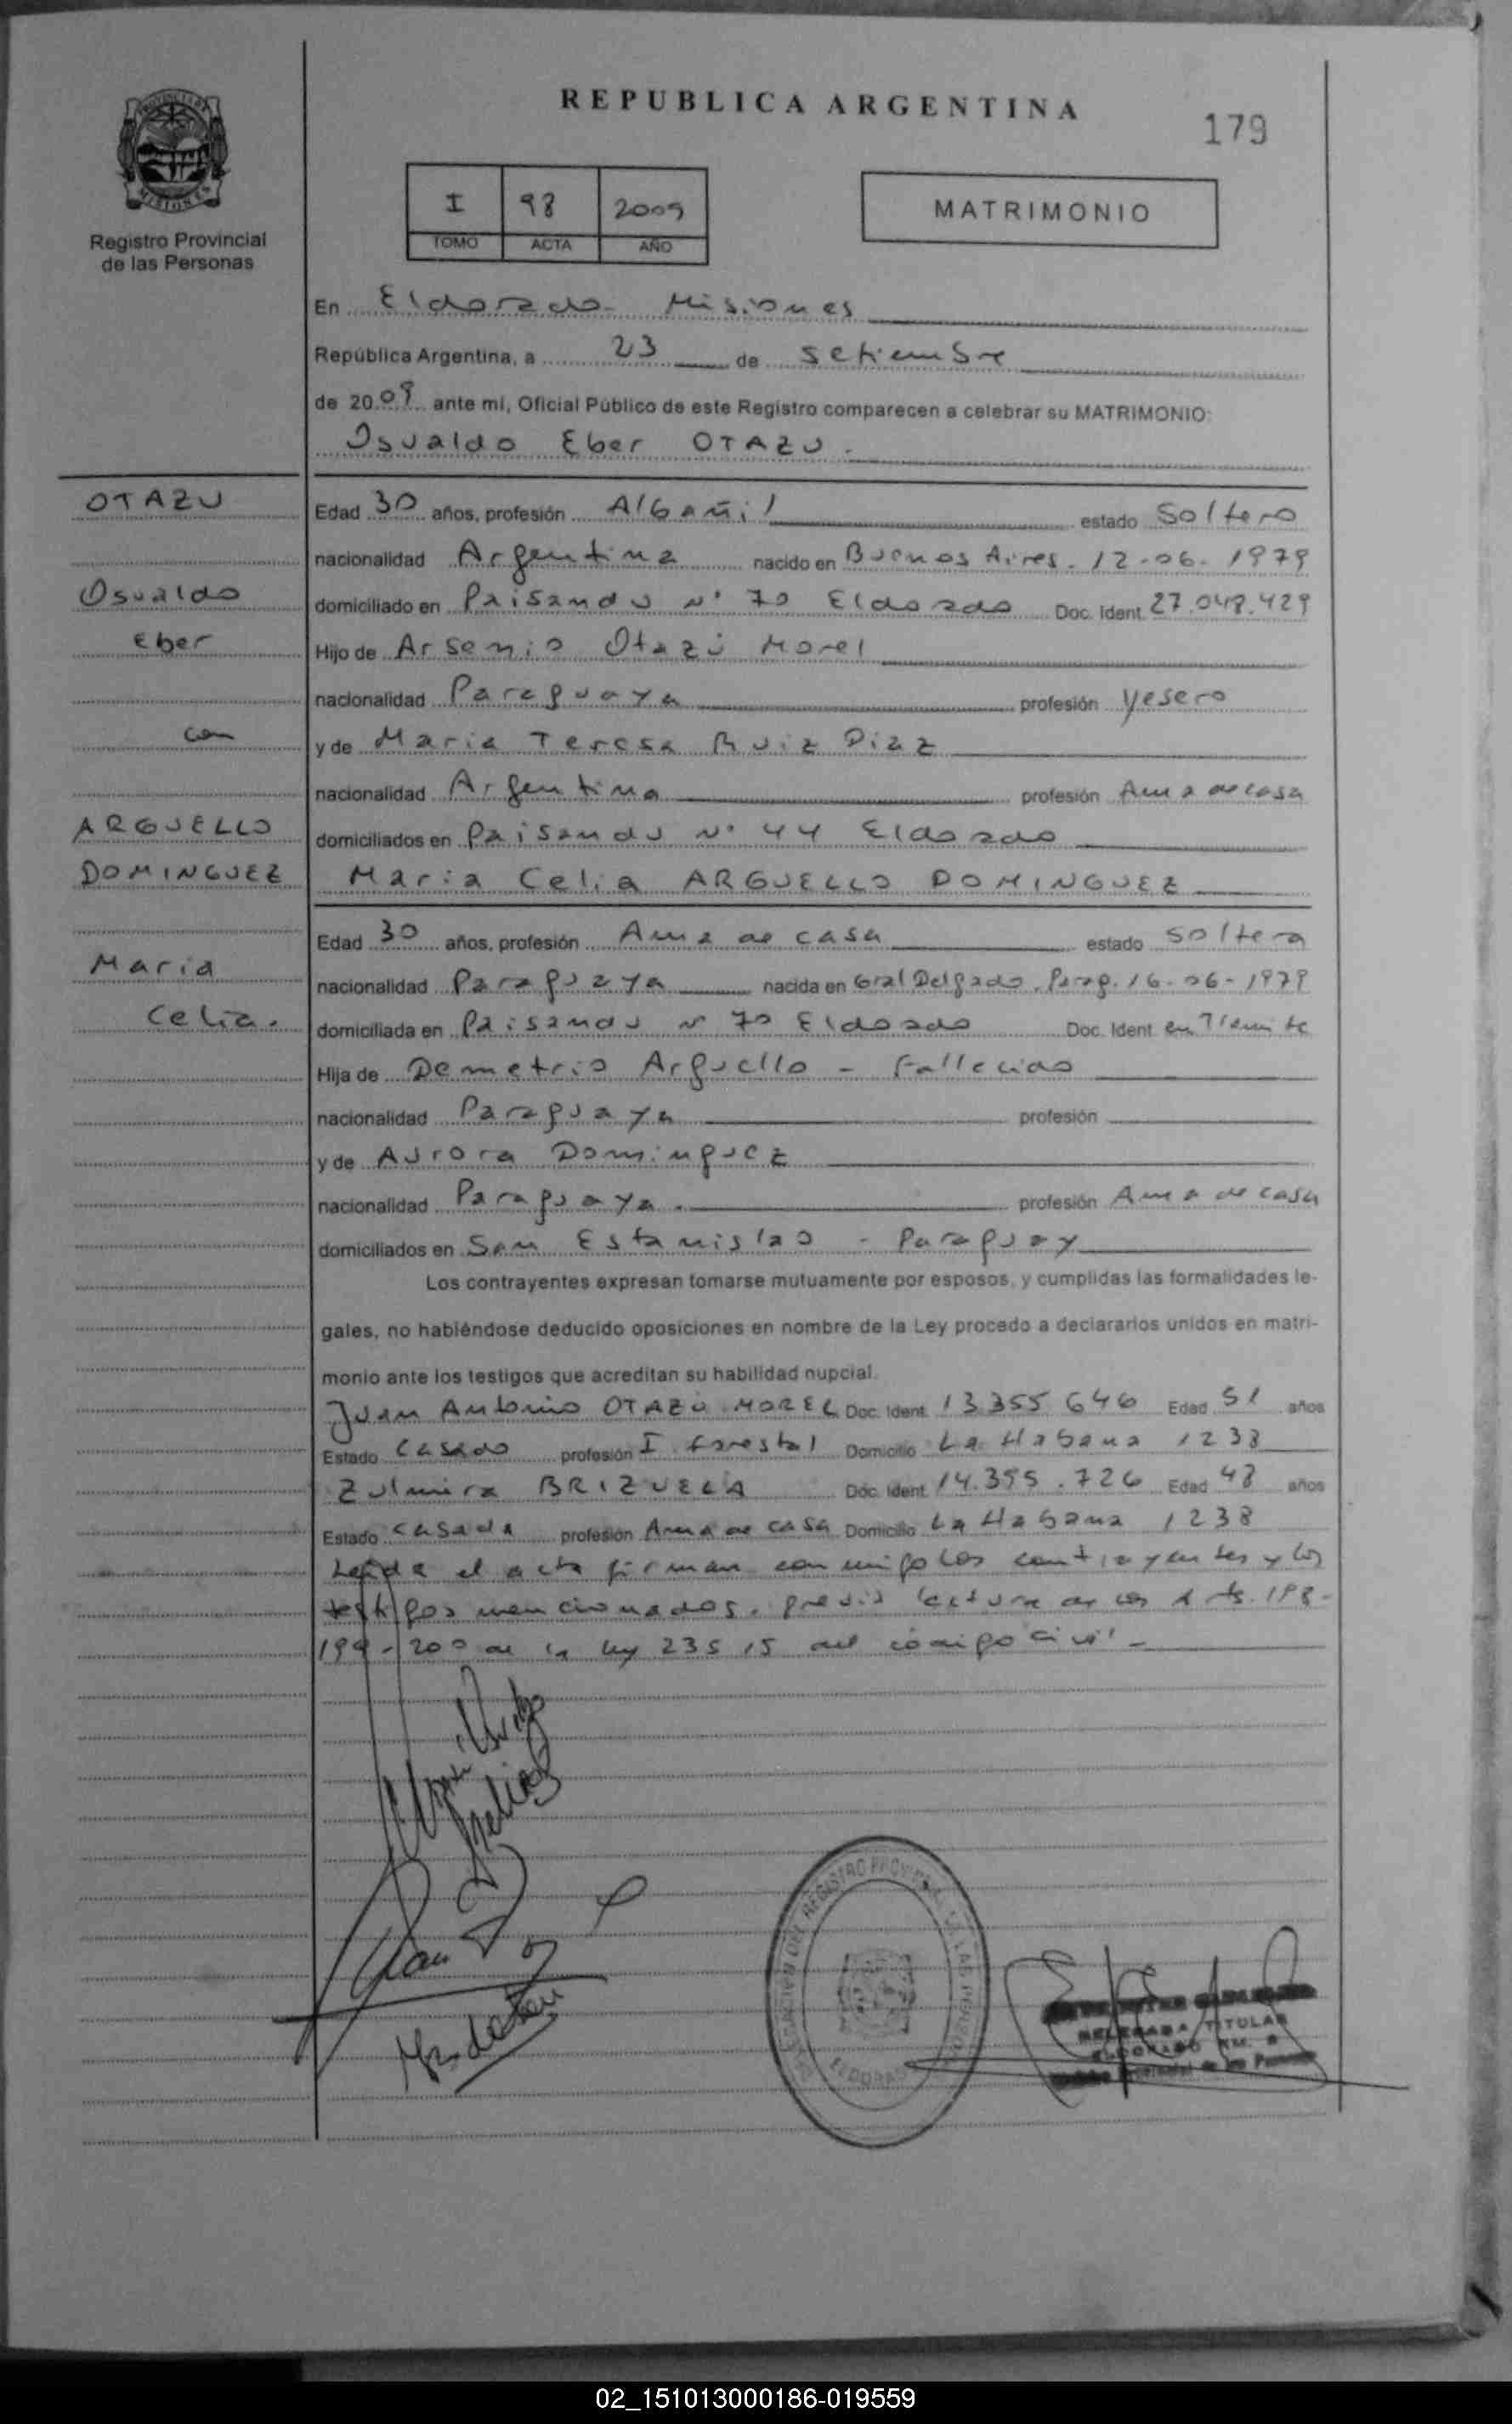 REPUBLICA ARGENTINA
179
PROVINCIA DE
MISIONES
Registro Provincial
de las Personas
I 98 2009
TOMO ACTA AÑO
MATRIMONIO
En Eldorado - Misiones
República Argentina, a 23 de setiembre
de 2009 ante mí, Oficial Público de este Registro comparecen a celebrar su MATRIMONIO:
Osvaldo Eber OTAZU.
OTAZU
Osvaldo
Eber
con
ARGUELLO
DOMINGUEZ
Maria
Celia.
Edad 30 años, profesión Albañil estado Soltero
nacionalidad Argentina nacido en Buenos Aires. 12-06-1979
domiciliado en Paisandu Nº 70 Eldorado Doc. Ident. 27.048.429
Hijo de Arsenio Otazú Morel
nacionalidad Paraguaya profesión Yesero
y de Maria Teresa Ruiz Diaz
nacionalidad Argentina profesión Ama de casa
domiciliados en Paisandu Nº 44 Eldorado
Maria Celia ARGUELLO DOMINGUEZ
Edad 30 años, profesión Ama de casa estado soltera
nacionalidad Paraguaya nacida en Gral Delgado. Parag. 16-06-1979
domiciliada en Paisandu Nº 70 Eldorado Doc. Ident. en Tramite
Hija de Demetrio Arguello - Fallecido
nacionalidad Paraguaya profesión
y de Aurora Dominguez
nacionalidad Paraguaya. profesión Ama de casa
domiciliados en San Estanislao - Paraguay
Los contrayentes expresan tomarse mutuamente por esposos, y cumplidas las formalidades le-
gales, no habiéndose deducido oposiciones en nombre de la Ley procedo a declararlos unidos en matri-
monio ante los testigos que acreditan su habilidad nupcial.
Juan Antonio OTAZÚ MOREL Doc. Ident. 13.355.646 Edad 51 años
Estado Casado profesión I. forestal Domicilio La Habana 1238
Zulmira BRIZUELA Doc. Ident. 14.355.726 Edad 48 años
Estado Casada profesión Ama de casa Domicilio La Habana 1238
Leida el acta firman conmigo los contrayentes y los
testigos mencionados. previa lectura de los Arts. 198-
199-200 de la ley 23515 del código civil -
DEL REGISTRO PROVINCIAL DE LAS PERSONAS
ELDORADO
DELEGADA TITULAR
ELDORADO KM. 8
Registro Provincial de las Personas
02_151013000186-019559